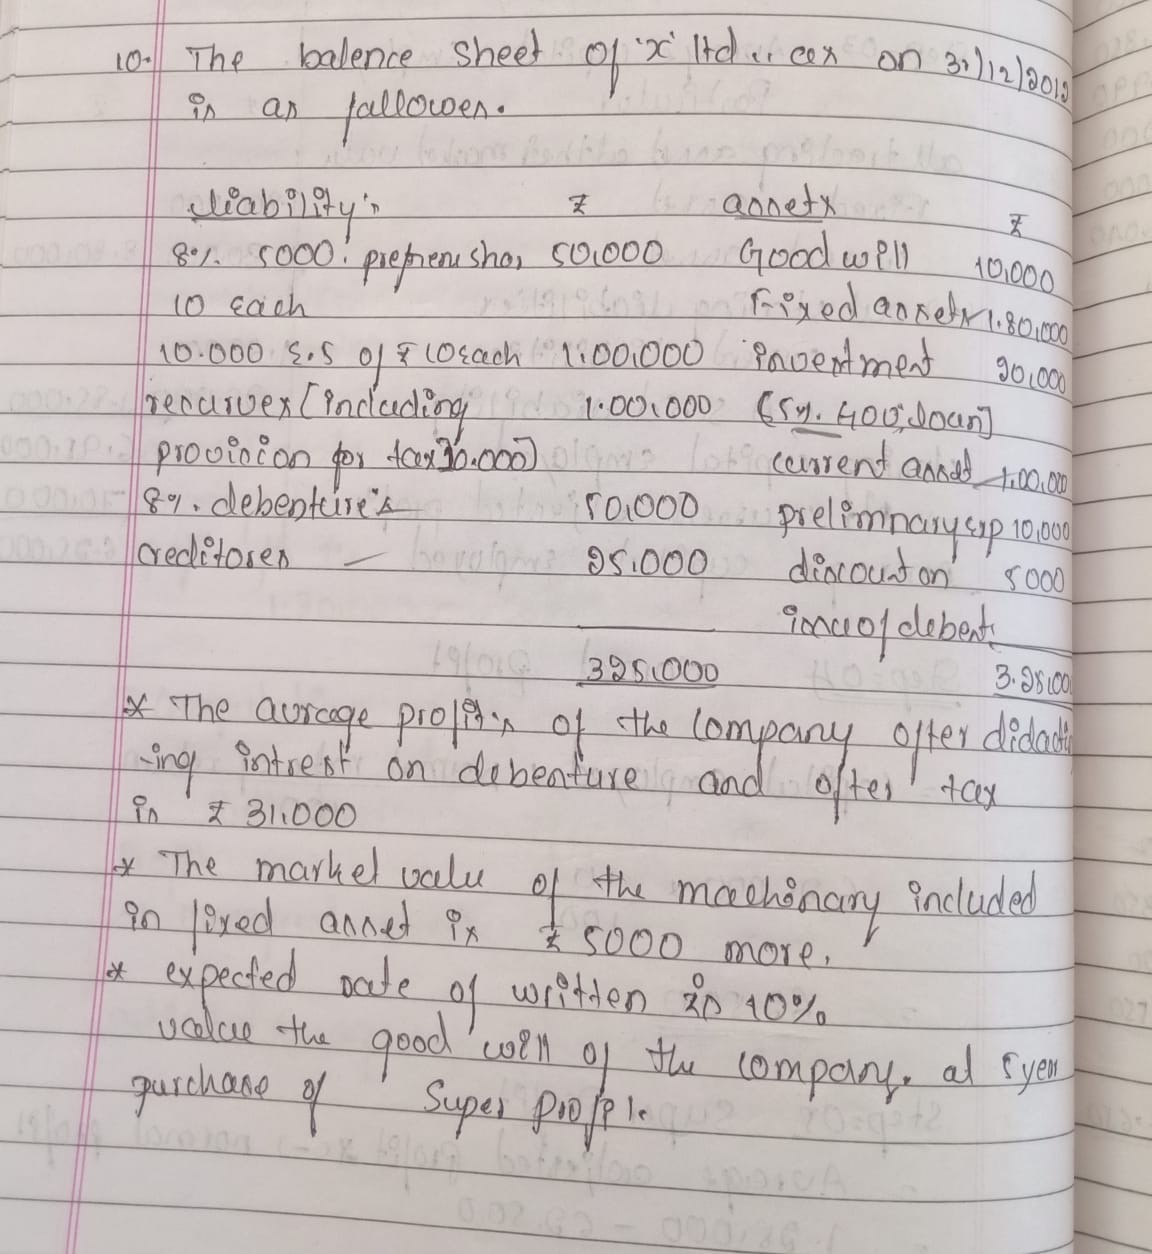 10. The balence sheet of 'x' ltd.. cex on 31/12/2012
in as fallowes.
Liability's ₹ assets ₹
8% 5000 preferensha, 50,000 Good will 10,000
10 each Fixed assets 1.80,000
10.000 E.S of ₹ 10 each 1.00.000 investment 20,000
reserves [including 1.00.000 [5% Loan]
provision for tax 10.000] current asset 1.00,000
8%. debenture's 50,000 prelimnary exp 10,000
creditores — 25.000 discount on 5000
issue of debent.
325.000 3.25,00
* The average profit's of the company after didadi
-ing intrest on debenture and after tax
in ₹ 31.000
* The market valu of the machinary included
in fixed asset is ₹ 5000 more.
* expected rate of written is 10%
value the good will of the company. at 5 year
purchase of Super profit.